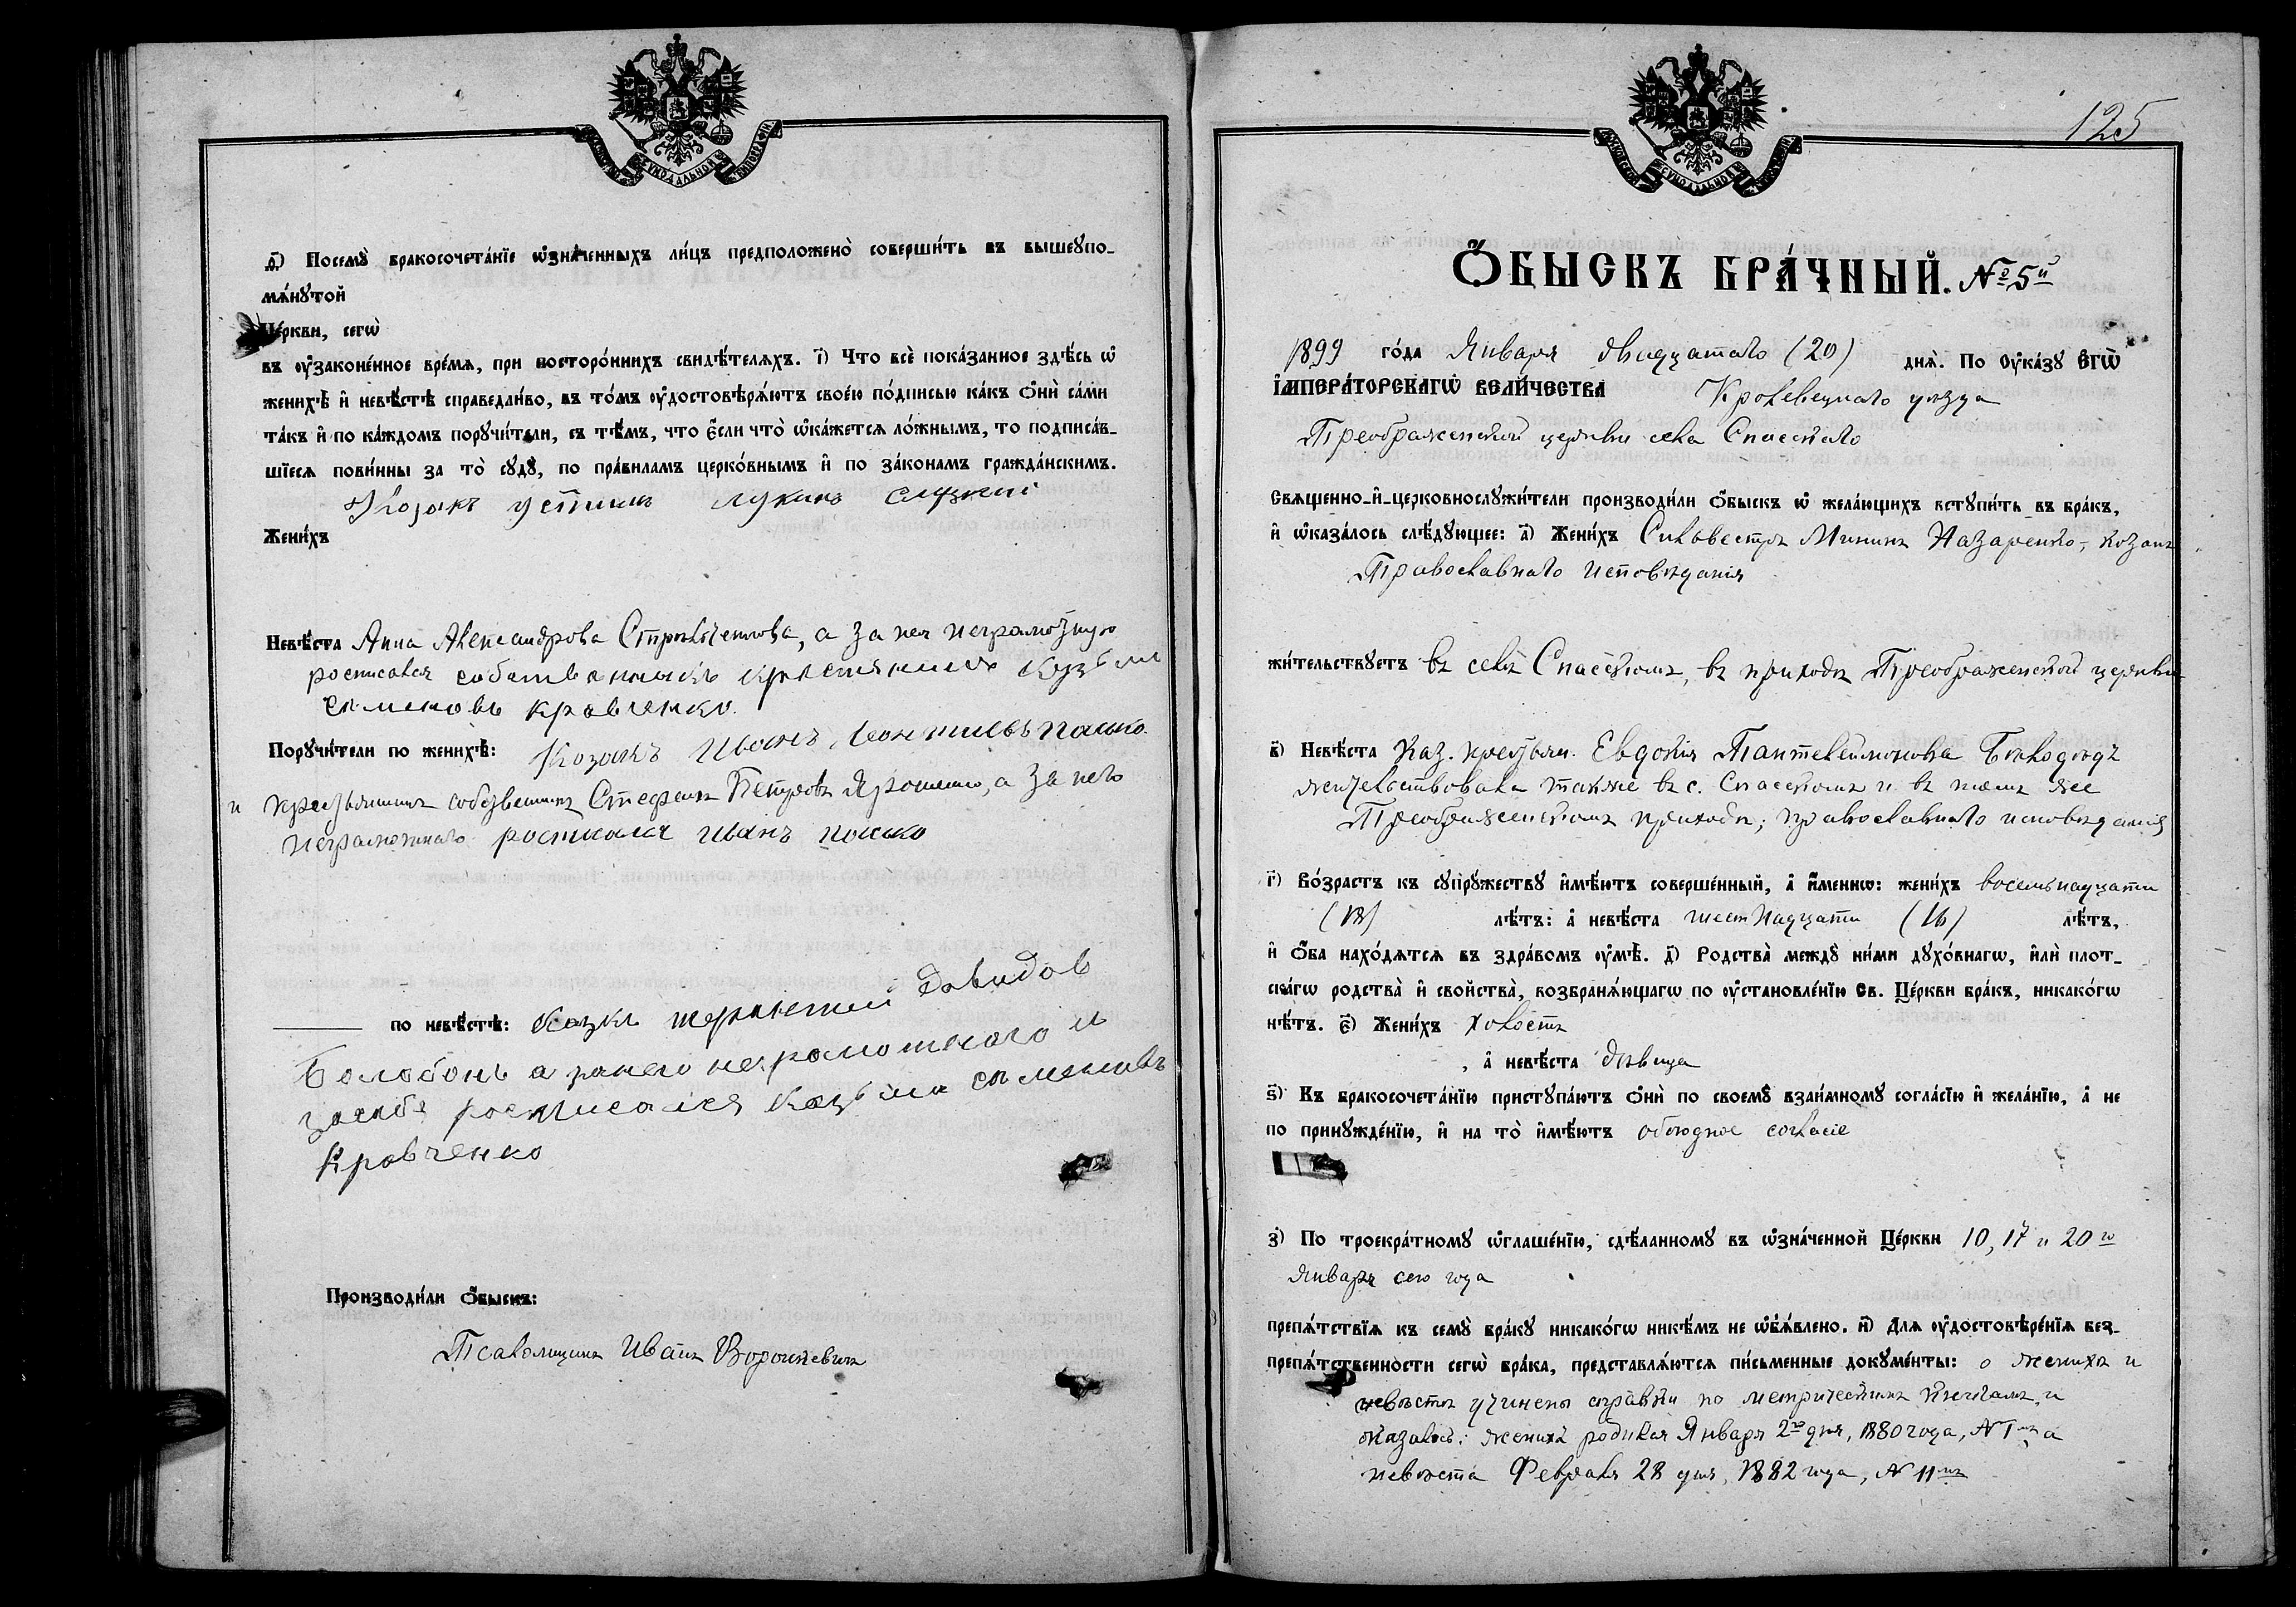 ѳ҃) Посемꙋ̀ бракосочета́нїе ѡ҆зна́ченныхъ ли́цъ предположено̀ соверши́ть въ вышеꙋпо-
мѧ́нꙋтой
Це́ркви, сегѡ̀
въ ᲂу҆законе́нное вре́мѧ, при восторо́ннихъ свидѣ́телѧхъ. і҃) Что всѐ пока́занное здѣ́сь ѡ҆
женихѣ̀ и҆ невѣ́стѣ справедли́во, въ то́мъ ᲂу҆достовѣрѧ́ютъ свое́ю по́дписью ка́къ ѻ҆нѝ са́ми
та́къ и҆ по ка́ждомъ порꙋчи́тели, съ тѣ́мъ, что є҆́сли что̀ ѡ҆ка́жетсѧ ло́жнымъ, то подписа́в-
шїесѧ пови́нны за то̀ сꙋдꙋ̀, по пра́виламъ церко́внымъ и҆ по зако́намъ гражда́нскимъ.
Козакъ устинъ лукинъ
Жени́хъ
Невѣ́ста Анна Александрова, а за нея неграмотную
росписался собственникъ крестянинъ Кузьма
Семеновъ кравченко.
Порꙋчи́тели по женихѣ̀: Козакъ Иванъ Леонтиевъ пашко
и крестьянинъ собственникъ Стефанъ Петровъ Ярошенко, а за него
неграмотнаго росписался иванъ пашко
по невѣ́стѣ: козакъ терентий давидов
Болобонъ а занего неграмотного и
засебя росписался Козьма семеновъ
Кравченко
Производи́ли ѻ҆́быскъ:
Псаломщикъ Иванъ
125
Ѻ҆́быскъ бра́чный. № 5й
1899 го́да Января двадцатаго (20) днѧ̀. По ᲂу҆ка́зꙋ Є҆гѡ̀
І҆мпера́торскагѡ вели́чества Кролевецкаго уѣзда
Преображенской церкви села Спасскаго
Свѧще́нно-и҆-церковнослꙋжи́тели производи́ли ѻ҆́быскъ ѡ҆ жела́ющихъ встꙋпи́ть въ бра́къ,
и҆ ѡ҆каза́лось слѣ́дꙋющее: а҃) Жени́хъ Сильвестръ Мининъ Назаренко, козакъ
Православнаго исповѣданія
жи́тельствꙋетъ въ селѣ Спасскомъ, въ приходѣ Преображенской церкви
в҃) Невѣ́ста Каз. крестьян. Евдокія Пантелеимонова
жительствовала также въ с. Спасскомъ и въ томъ же
Преображенскомъ приходѣ; православнаго исповѣданія
г҃) Во́зрастъ къ сꙋпрꙋ́жествꙋ и҆мѣ́ютъ соверше́нный, а҆ и҆́менно: жени́хъ восемьнадцати
(18) лѣ́тъ: а҆ невѣ́ста шестнадцати (16) лѣ́тъ,
и҆ ѻ҆́ба нахо́дѧтсѧ въ здра́вомъ ᲂу҆мѣ̀. д҃) Родства̀ междꙋ̀ ни́ми дꙋхо́внагѡ, и҆лѝ плот-
ска́гѡ родства̀ и҆ свойства̀, возбранѧ́ющагѡ по ᲂу҆становле́нїю Св. Це́ркви бра́къ, никако́гѡ
нѣ́тъ. є҃) Жени́хъ холостъ
, а҆ невѣ́ста дѣвица
ѕ҃) Къ бракосочета́нїю пристꙋпа́ютъ ѻ҆нѝ по своемꙋ̀ взаи́мномꙋ согла́сїю и҆ жела́нїю, а҆ не
по принꙋжде́нїю, и҆ на то̀ и҆мѣ́ютъ обоюдное согласіе
з҃) По троекра́тномꙋ ѡ҆глаше́нїю, сдѣ́ланномꙋ въ ѡ҆зна́ченной Це́ркви 10, 17 и 20го
Января сего года
препѧ́тствїѧ къ семꙋ̀ бра́кꙋ никако́гѡ никѣ́мъ не ѡ҆б̾ѧ́влено. и҃) Длѧ ᲂу҆достовѣре́нїѧ без-
препѧ́тственности сегѡ̀ бра́ка, представлѧ́ютсѧ пи́сьменные докꙋме́нты: о женихѣ и
невѣстѣ учинены справки по метрическимъ книгамъ и
оказалось: женихъ родился Января 2го дня, 1880 года, № 1мъ а
невѣста Февраля 28 дня, 1882 года, № 11мъ